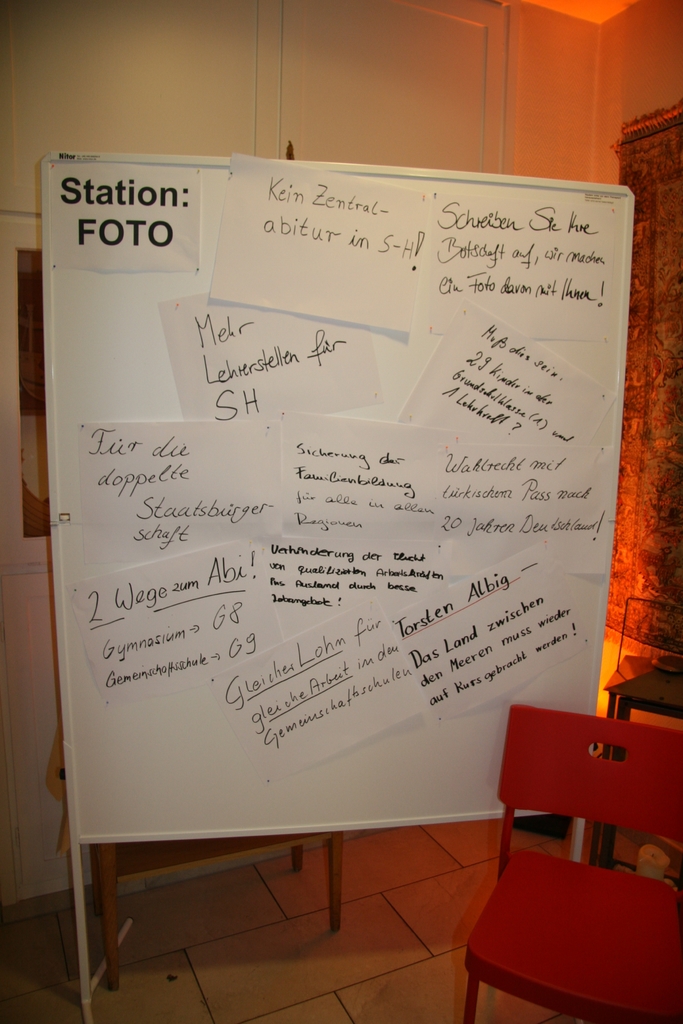 Nitor
Station:
FOTO
Kein Zentral-
abitur in S-H!
Schreiben Sie Ihre
Botschaft auf, wir machen
ein Foto davon mit Ihnen!
Mehr
Lehrerstellen für
SH
Muß dies sein:
29 Kinder in der
Grundschulklasse (1) und
1 Lehrkraft?
Für die
doppelte
Staatsbürger-
schaft
Sicherung der
Familienbildung
für alle in allen
Regionen
Wahlrecht mit
türkischem Pass nach
20 Jahren Deutschland!
2 Wege zum Abi!
Gymnasium → G8
Gemeinschaftsschule → G9
Verhinderung der Flucht
von qualifizierten Arbeitskräften
ins Ausland durch bessere
Jobangebote!
Gleicher Lohn für
gleiche Arbeit in den
Gemeinschaftsschulen
Torsten Albig –
Das Land zwischen
den Meeren muss wieder
auf Kurs gebracht werden!